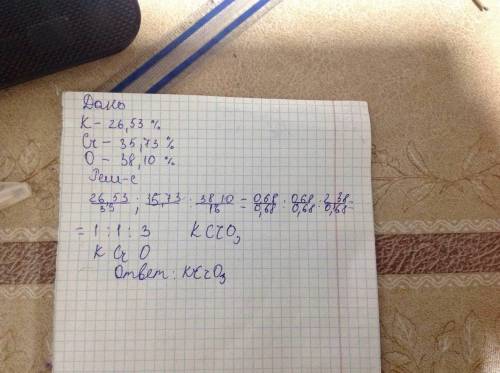 Дано
K – 26,53 %
Cr – 35,73 %
O – 38,10 %
Реш-е
26,53/39 : 35,73 : 38,10/16 = 0,68/0,68 : 0,68/0,68 : 2,38/0,68
= 1 : 1 : 3 KCrO3
K Cr O
Ответ: KCrO3